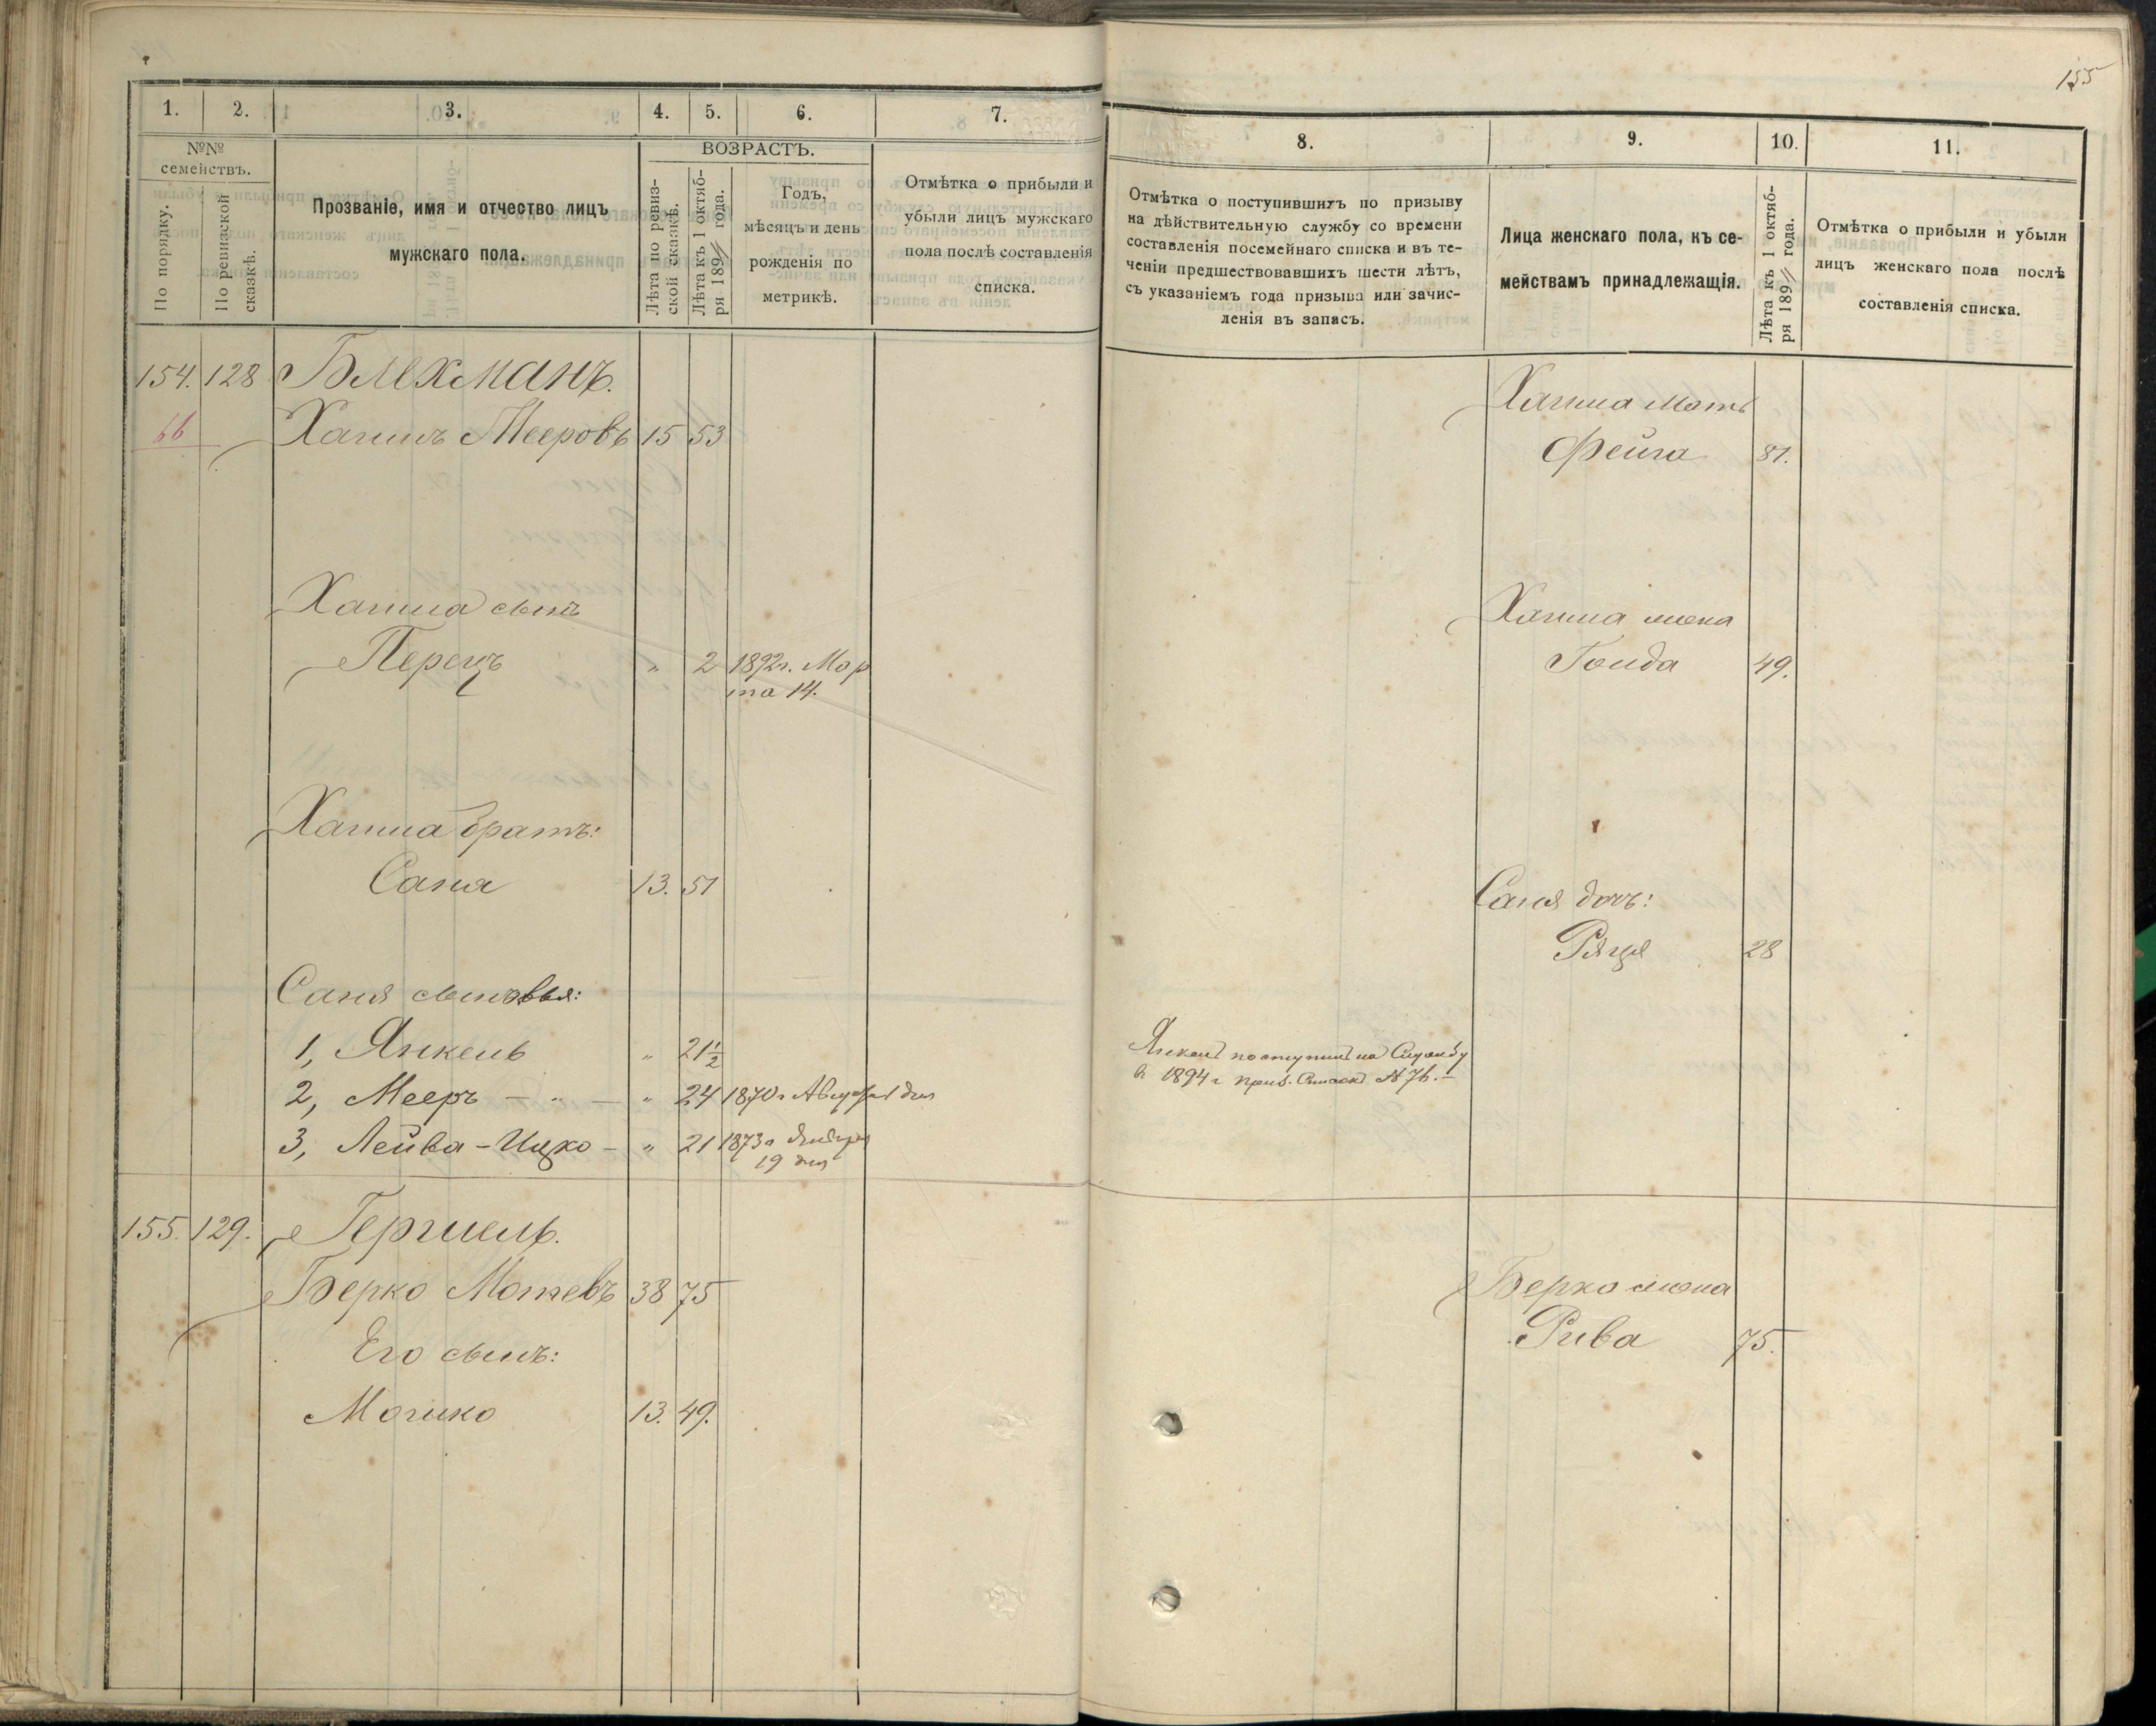 155
1. 2. 3. 4. 5. 6. 7.
№№ семействъ.
По порядку.
По ревизской сказкѣ.
Прозваніе, имя и отчество лицъ
мужскаго пола.
ВОЗРАСТЪ.
Лѣта по ревиз-
ской сказкѣ.
Лѣта къ 1 октяб-
ря 189 года.
Годъ,
мѣсяцъ и день
рожденія по
метрикѣ.
Отмѣтка о прибыли и
убыли лицъ мужскаго
пола послѣ составленія
списка.
154. 128 Блехманъ.
66 Хаимъ Мееровъ 15 53
Хаима сынъ
Перецъ " 2 1892 г. Мар
та 14.
Хаима братъ:
Саня 13. 51
Саня сыновья:
1, Янкель " 21 1/2
2, Мееръ - " - " 24 1870 г Августа 1 дня
3, Лейва-Ицко - " 21 1873 г Января
19 дня
155. 129. Гершель.
Берко Мошевъ 38 75
Его сынъ:
Мошко 13. 49.
8. 9. 10. 11.
Отмѣтка о поступившихъ по призыву
на дѣйствительную службу со времени
составленія посемейнаго списка и въ те-
ченіи предшествовавшихъ шести лѣтъ,
съ указаніемъ года призыва или зачис-
ленія въ запасъ.
Лица женскаго пола, къ се-
мействамъ принадлежащія.
Лѣта къ 1 октяб-
ря 189 года.
Отмѣтка о прибыли и убыли
лицъ женскаго пола послѣ
составленія списка.
Хаима мать
Фейга 81.
Хаима жена
Гонда 49.
Саня дочь:
Ряця 28
Янкель поступил на Службу
в 1894 г приз. Список № 76. -
Берко жена
Рива 75.